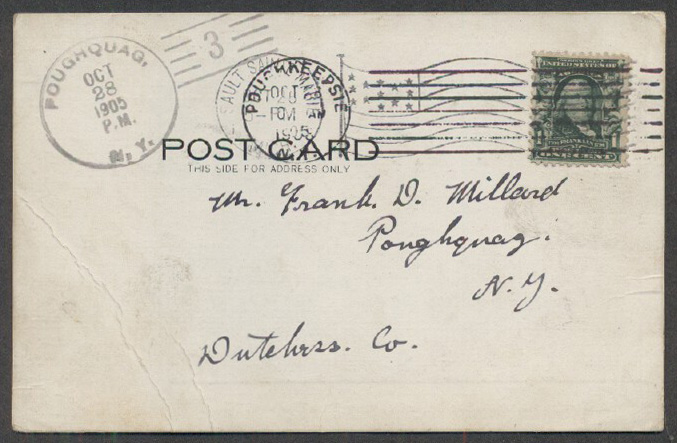 POUGHQUAG,
OCT
28
1905
P.M.
N.Y.
3
SAULT SAINTE MARIE
POUGHKEEPSIE
OCT
1905
N.Y.
UNITED STATES OF
FRANKLIN
ONE CENT
POST CARD
THIS SIDE FOR ADDRESS ONLY
Mr. Frank. D. Millard
Poughquag.
N.Y.
Dutchess. Co.